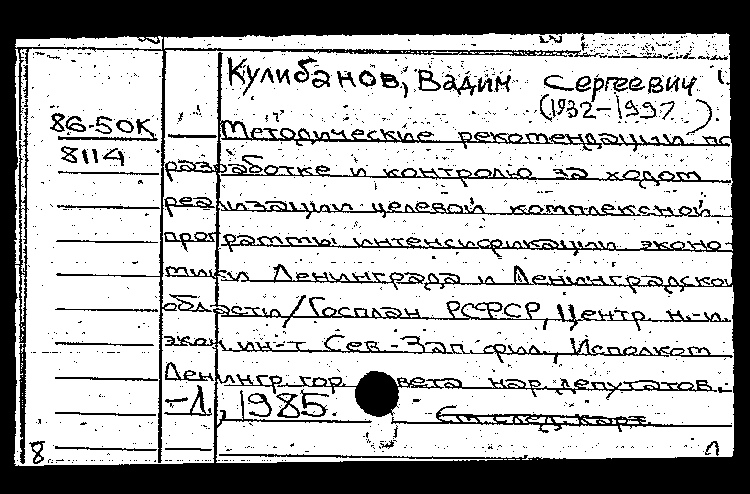 Кулибанов, Вадим Сергеевич
(1932-1997)
86-50К
8114
Методические рекомендации по
разработке и контролю за ходом
реализации целевой комплексной
программы интенсификации эконо-
мики Ленинграда и Ленинградской
области/Госплан РСФСР, Центр. н.-и.
экон. ин-т. Сев.-Зап. фил., Исполком
Ленингр. гор. вета нар. депутатов.
-Л., 1985.
См. след. карт.
8